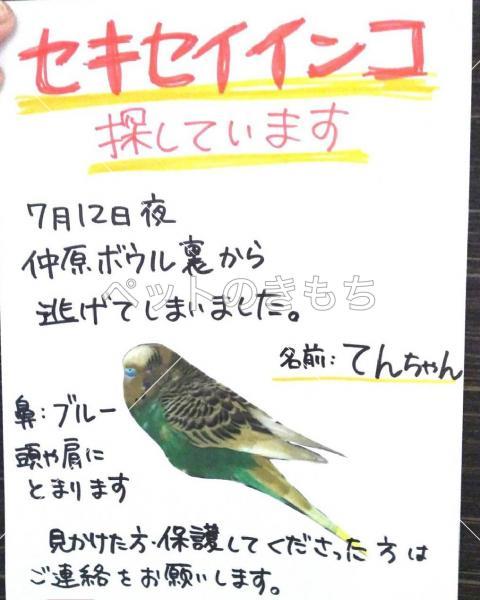 セキセイインコ
探しています
7月12日夜
仲原ボウル裏から
ペットのきもち
逃げてしまいました。
名前:てんちゃん
鼻:ブルー
頭や肩に
とまります
見かけた方・保護してくださった方は
ご連絡をお願いします。